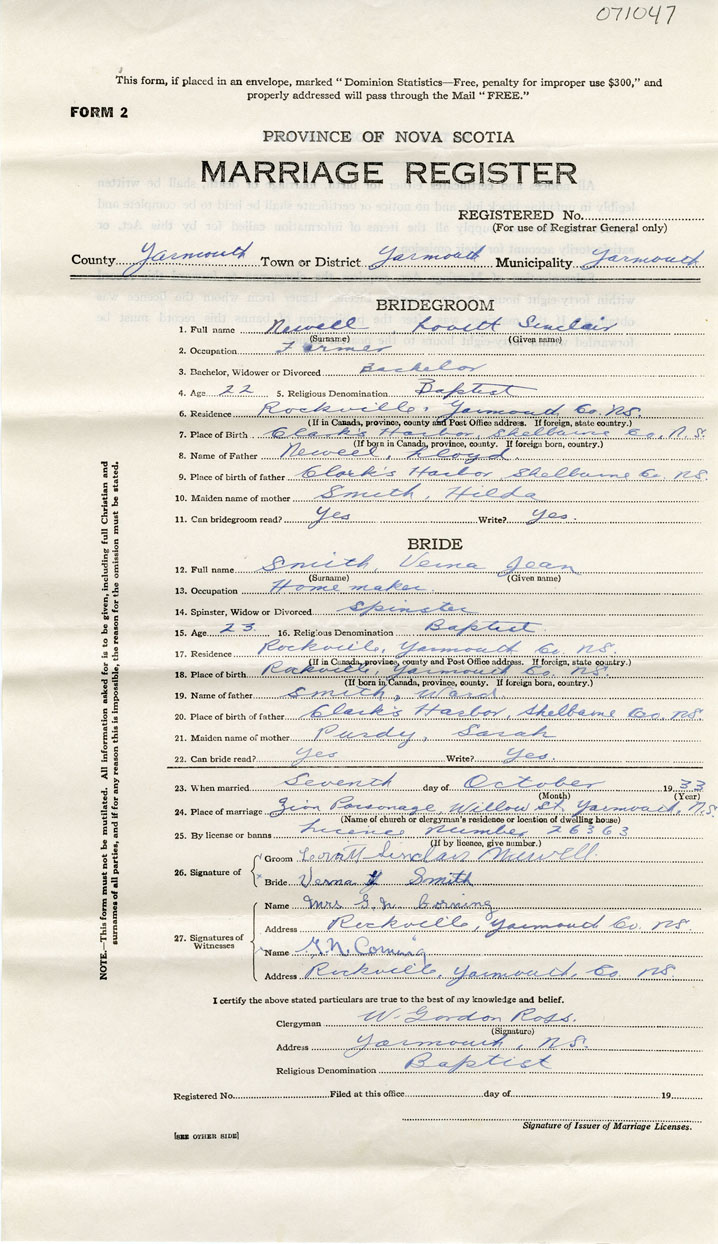 071047
This form, if placed in an envelope, marked "Dominion Statistics—Free, penalty for improper use $300," and
properly addressed will pass through the Mail "FREE."
FORM 2
PROVINCE OF NOVA SCOTIA
MARRIAGE REGISTER
REGISTERED No.
(For use of Registrar General only)
County Yarmouth Town or District Yarmouth Municipality Yarmouth
BRIDEGROOM
1. Full name Newell Lovitt Sinclair
(Surname) (Given name)
2. Occupation Farmer
3. Bachelor, Widower or Divorced Bachelor
4. Age 22 5. Religious Denomination Baptist
6. Residence Rockville, Yarmouth Co. N.S.
(If in Canada, province, county and Post Office address. If foreign, state country.)
7. Place of Birth Clark's Harbor, Shelburne Co., N.S.
(If born in Canada, province, county. If foreign born, country.)
8. Name of Father Newell, Lloyd
9. Place of birth of father Clark's Harbor Shelburne Co. N.S.
10. Maiden name of mother Smith, Hilda
11. Can bridegroom read? Yes Write? Yes.
BRIDE
12. Full name Smith Verna Jean
(Surname) (Given name)
13. Occupation Home maker
14. Spinster, Widow or Divorced Spinster
15. Age 23 16. Religious Denomination Baptist
17. Residence Rockville, Yarmouth Co. N.S.
(If in Canada, province, county and Post Office address. If foreign, state country.)
18. Place of birth Rockville, Yarmouth Co. N.S.
(If born in Canada, province, county. If foreign born, country.)
19. Name of father Smith, Ward
20. Place of birth of father Clark's Harbor, Shelburne Co. N.S.
21. Maiden name of mother Purdy, Sarah
22. Can bride read? Yes Write? Yes.
23. When married Seventh day of October 1933
(Month) (Year)
24. Place of marriage Zion Parsonage, Willow St. Yarmouth, N.S.
(Name of church or clergyman's residence or location of dwelling house)
25. By license or banns Licence Number 26363
(If by licence, give number.)
26. Signature of
Groom Lovitt Sinclair Newell
Bride Verna J Smith
27. Signatures of Witnesses
Name Mrs G. N. Corning
Address Rockville, Yarmouth Co. N.S.
Name G. N. Corning
Address Rockville, Yarmouth, Co. N.S.
I certify the above stated particulars are true to the best of my knowledge and belief.
Clergyman W. Gordon Ross.
(Signature)
Address Yarmouth, N.S.
Religious Denomination Baptist
Registered No. Filed at this office day of 19
Signature of Issuer of Marriage Licenses.
[SEE OTHER SIDE]
NOTE.—This form must not be mutilated. All information asked for is to be given, including full Christian and
surnames of all parties, and if for any reason this is impossible, the reason for the omission must be stated.